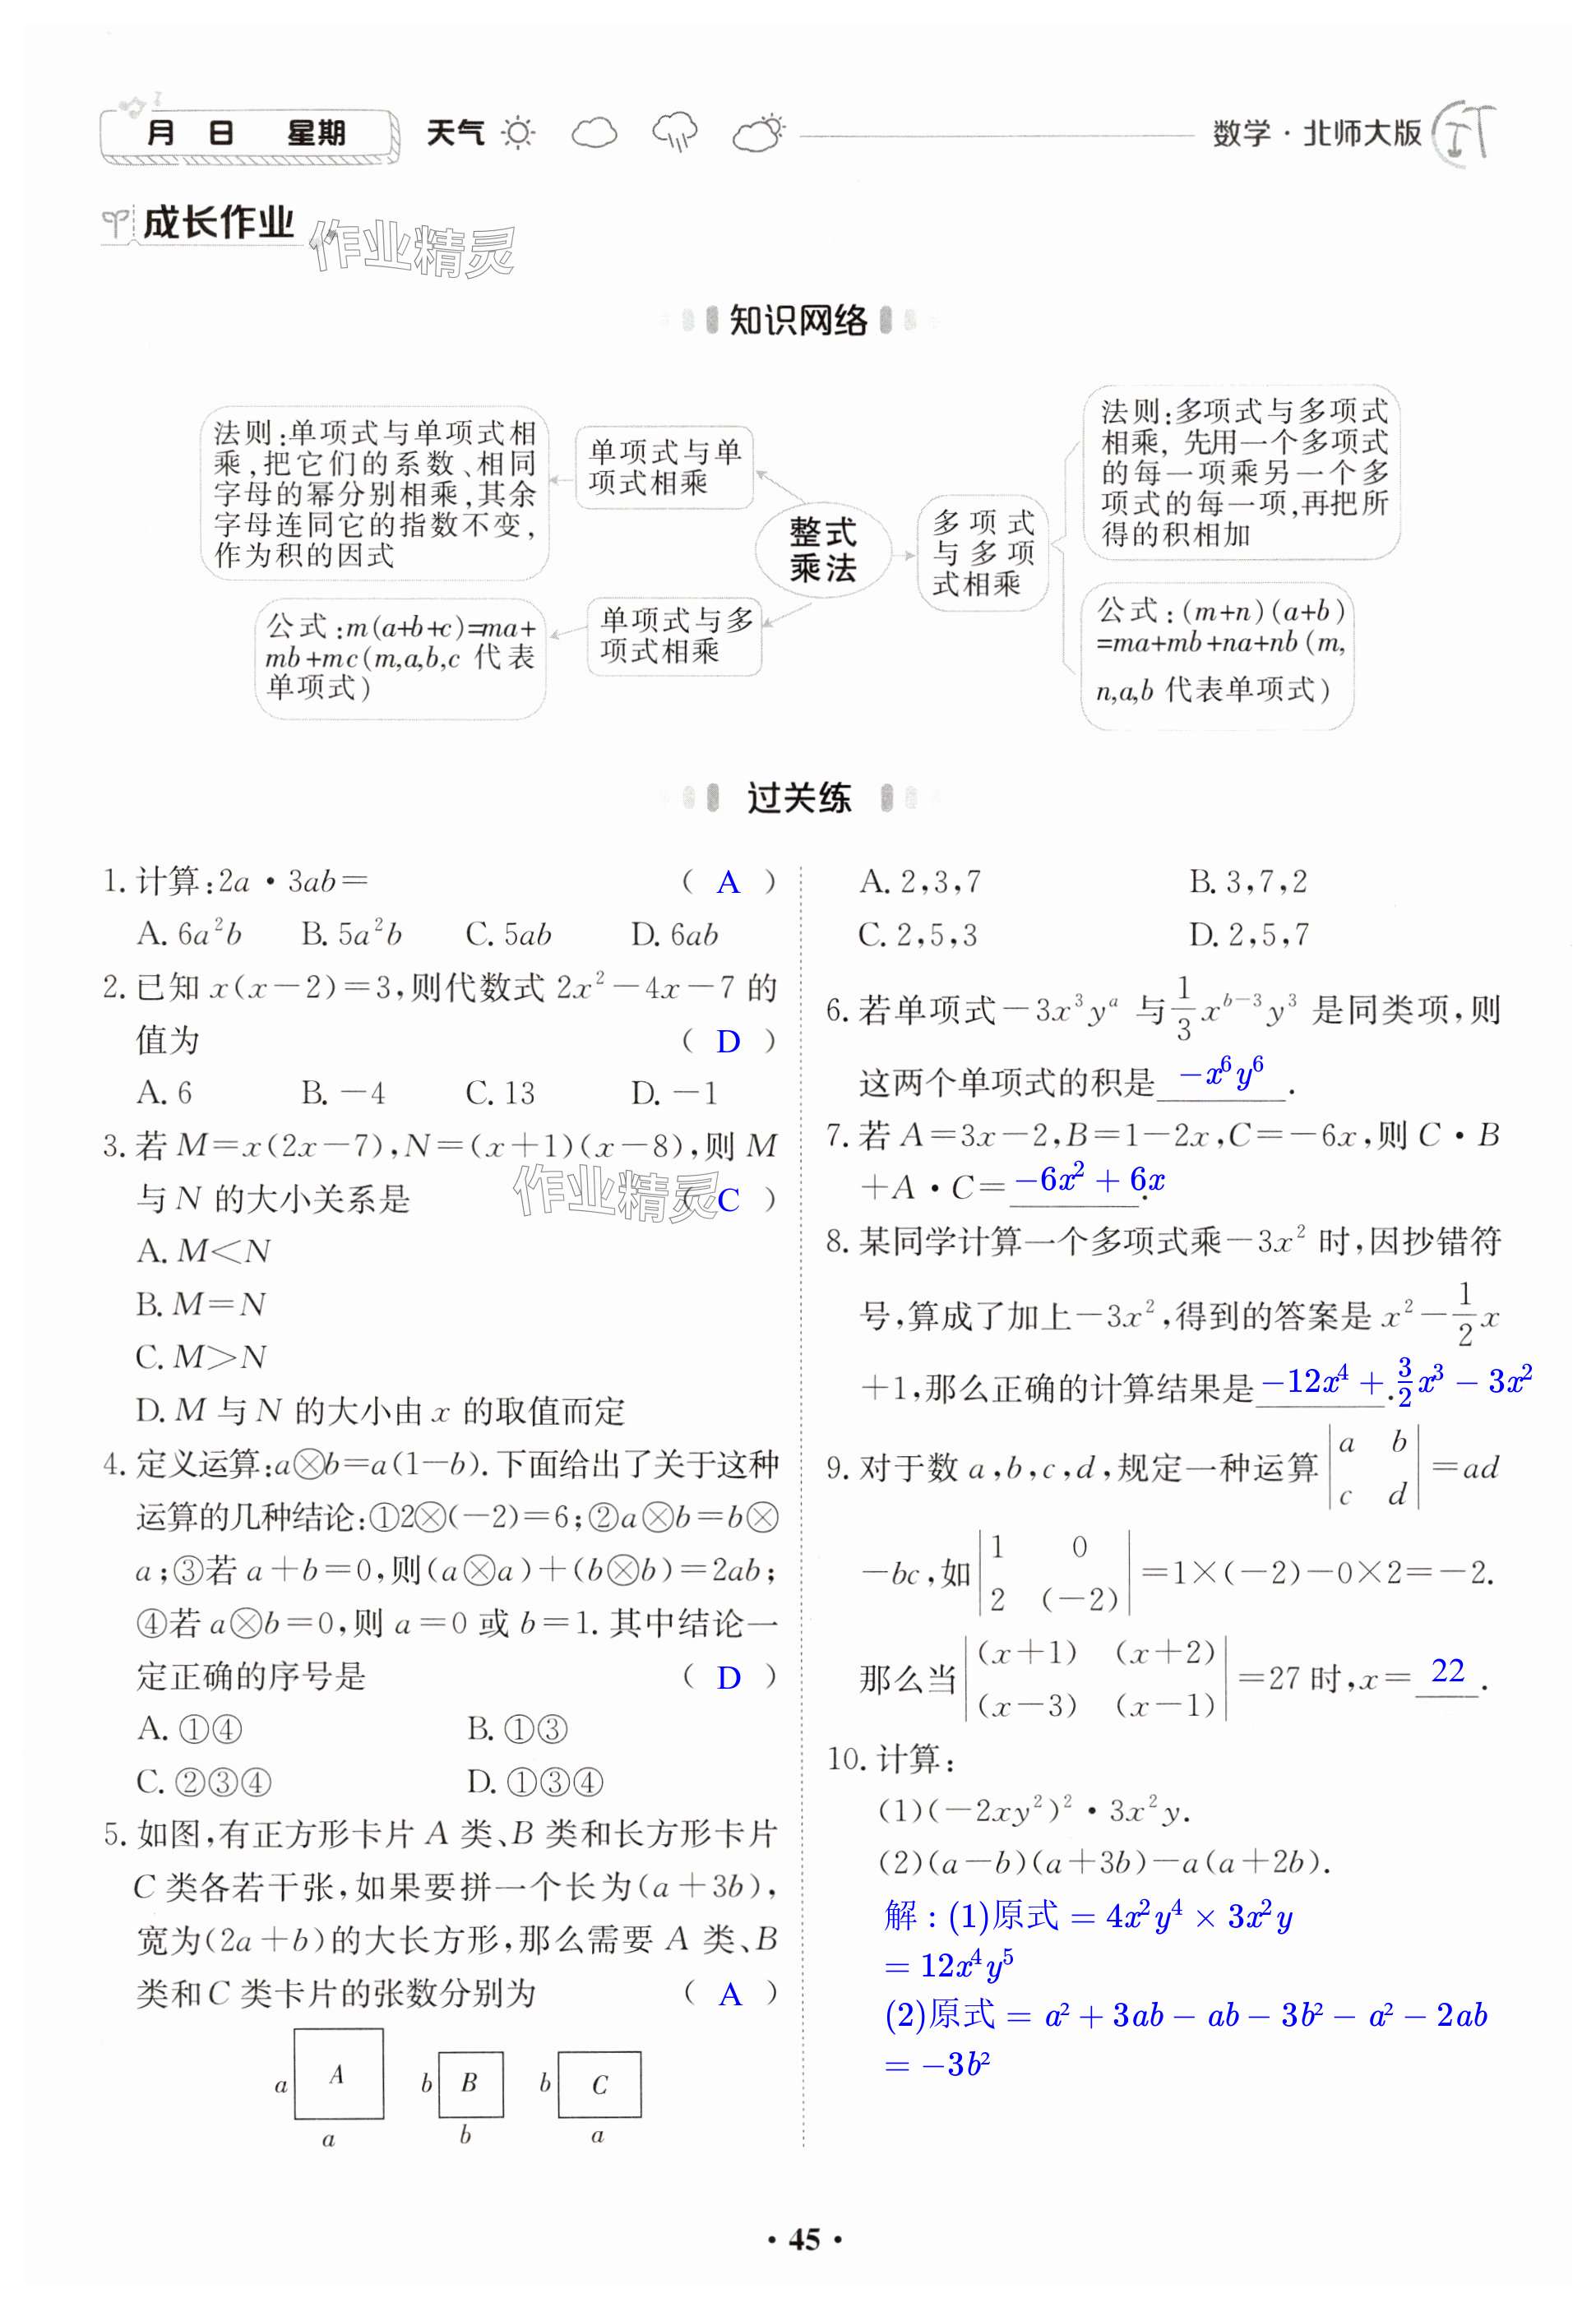 月 日 星期 天气 数学·北师大版
成长作业
作业精灵
知识网络
法则:单项式与单项式相
乘,把它们的系数、相同
字母的幂分别相乘,其余
字母连同它的指数不变,
作为积的因式
单项式与单
项式相乘
整式
乘法
公式:m(a+b+c)=ma+
mb+mc(m,a,b,c 代表
单项式)
单项式与多
项式相乘
多项式
与多项
式相乘
法则:多项式与多项式
相乘, 先用一个多项式
的每一项乘另一个多
项式的每一项,再把所
得的积相加
公式:(m+n)(a+b)
=ma+mb+na+nb(m,
n,a,b 代表单项式)
过关练
1. 计算:2a·3ab= ( A )
A. 6a²b B. 5a²b C. 5ab D. 6ab
2. 已知 x(x-2)=3,则代数式 2x²-4x-7 的
值为 ( D )
A. 6 B. -4 C. 13 D. -1
3. 若 M=x(2x-7),N=(x+1)(x-8),则 M
与 N 的大小关系是 ( C )
作业精灵
A. M<N
B. M=N
C. M>N
D. M 与 N 的大小由 x 的取值而定
4. 定义运算:a⊗b=a(1-b). 下面给出了关于这种
运算的几种结论:①2⊗(-2)=6;②a⊗b=b⊗
a;③若 a+b=0,则(a⊗a)+(b⊗b)=2ab;
④若 a⊗b=0,则 a=0 或 b=1. 其中结论一
定正确的序号是 ( D )
A. ①④ B. ①③
C. ②③④ D. ①③④
5. 如图,有正方形卡片 A 类、B 类和长方形卡片
C 类各若干张,如果要拼一个长为(a+3b),
宽为(2a+b)的大长方形,那么需要 A 类、B
类和 C 类卡片的张数分别为 ( A )
a A b B b C
a b a
A. 2,3,7 B. 3,7,2
C. 2,5,3 D. 2,5,7
6. 若单项式-3x³yᵃ 与 1/3 x^(b-3)y³ 是同类项,则
这两个单项式的积是 -x⁶y⁶ .
7. 若 A=3x-2,B=1-2x,C=-6x,则 C·B
+A·C= -6x² + 6x .
8. 某同学计算一个多项式乘-3x² 时,因抄错符
号,算成了加上-3x²,得到的答案是 x²-1/2 x
+1,那么正确的计算结果是 -12x⁴ + 3/2 x³ - 3x² .
9. 对于数 a,b,c,d,规定一种运算 |a b; c d| =ad
-bc,如 |1 0; 2 (-2)| =1×(-2)-0×2=-2.
那么当 |(x+1) (x+2); (x-3) (x-1)| =27 时,x= 22 .
10. 计算:
(1)(-2xy²)²·3x²y.
(2)(a-b)(a+3b)-a(a+2b).
解:(1)原式 = 4x²y⁴ × 3x²y
= 12x⁴y⁵
(2)原式 = a² + 3ab - ab - 3b² - a² - 2ab
= -3b²
· 45 ·